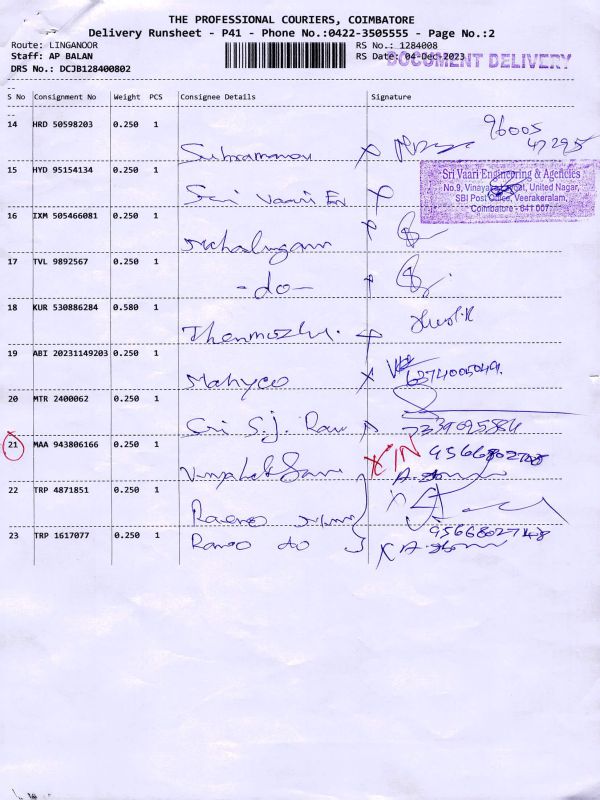 THE PROFESSIONAL COURIERS, COIMBATORE
Delivery Runsheet - P41 - Phone No.:0422-3505555 - Page No.:2
Route: LINGANOOR
Staff: AP BALAN
DRS No.: DCJB128400802
RS No.: 1284008
RS Date: 04-Dec-2023
DOCUMENT DELIVERY
S No Consignment No Weight PCS Consignee Details Signature
14 HRD 50598203 0.250 1
96005
47295
15 HYD 95154134 0.250 1
Sri Vaari En X
Sri Vaari Engineering & Agencies
No.9, Vinayaka United Nagar,
SBI Post Office, Veerakeralam,
Coimbatore - 641 007.
16 IXM 505466081 0.250 1
17 TVL 9892567 0.250 1
- do -
18 KUR 530886284 0.580 1
Thenmozhi.
19 ABI 20231149203 0.250 1
Mahyco X 6374005049.
20 MTR 2400062 0.250 1
Sri S.J.
21 MAA 943806166 0.250 1
22 TRP 4871851 0.250 1
23 TRP 1617077 0.250 1
do
9566802748